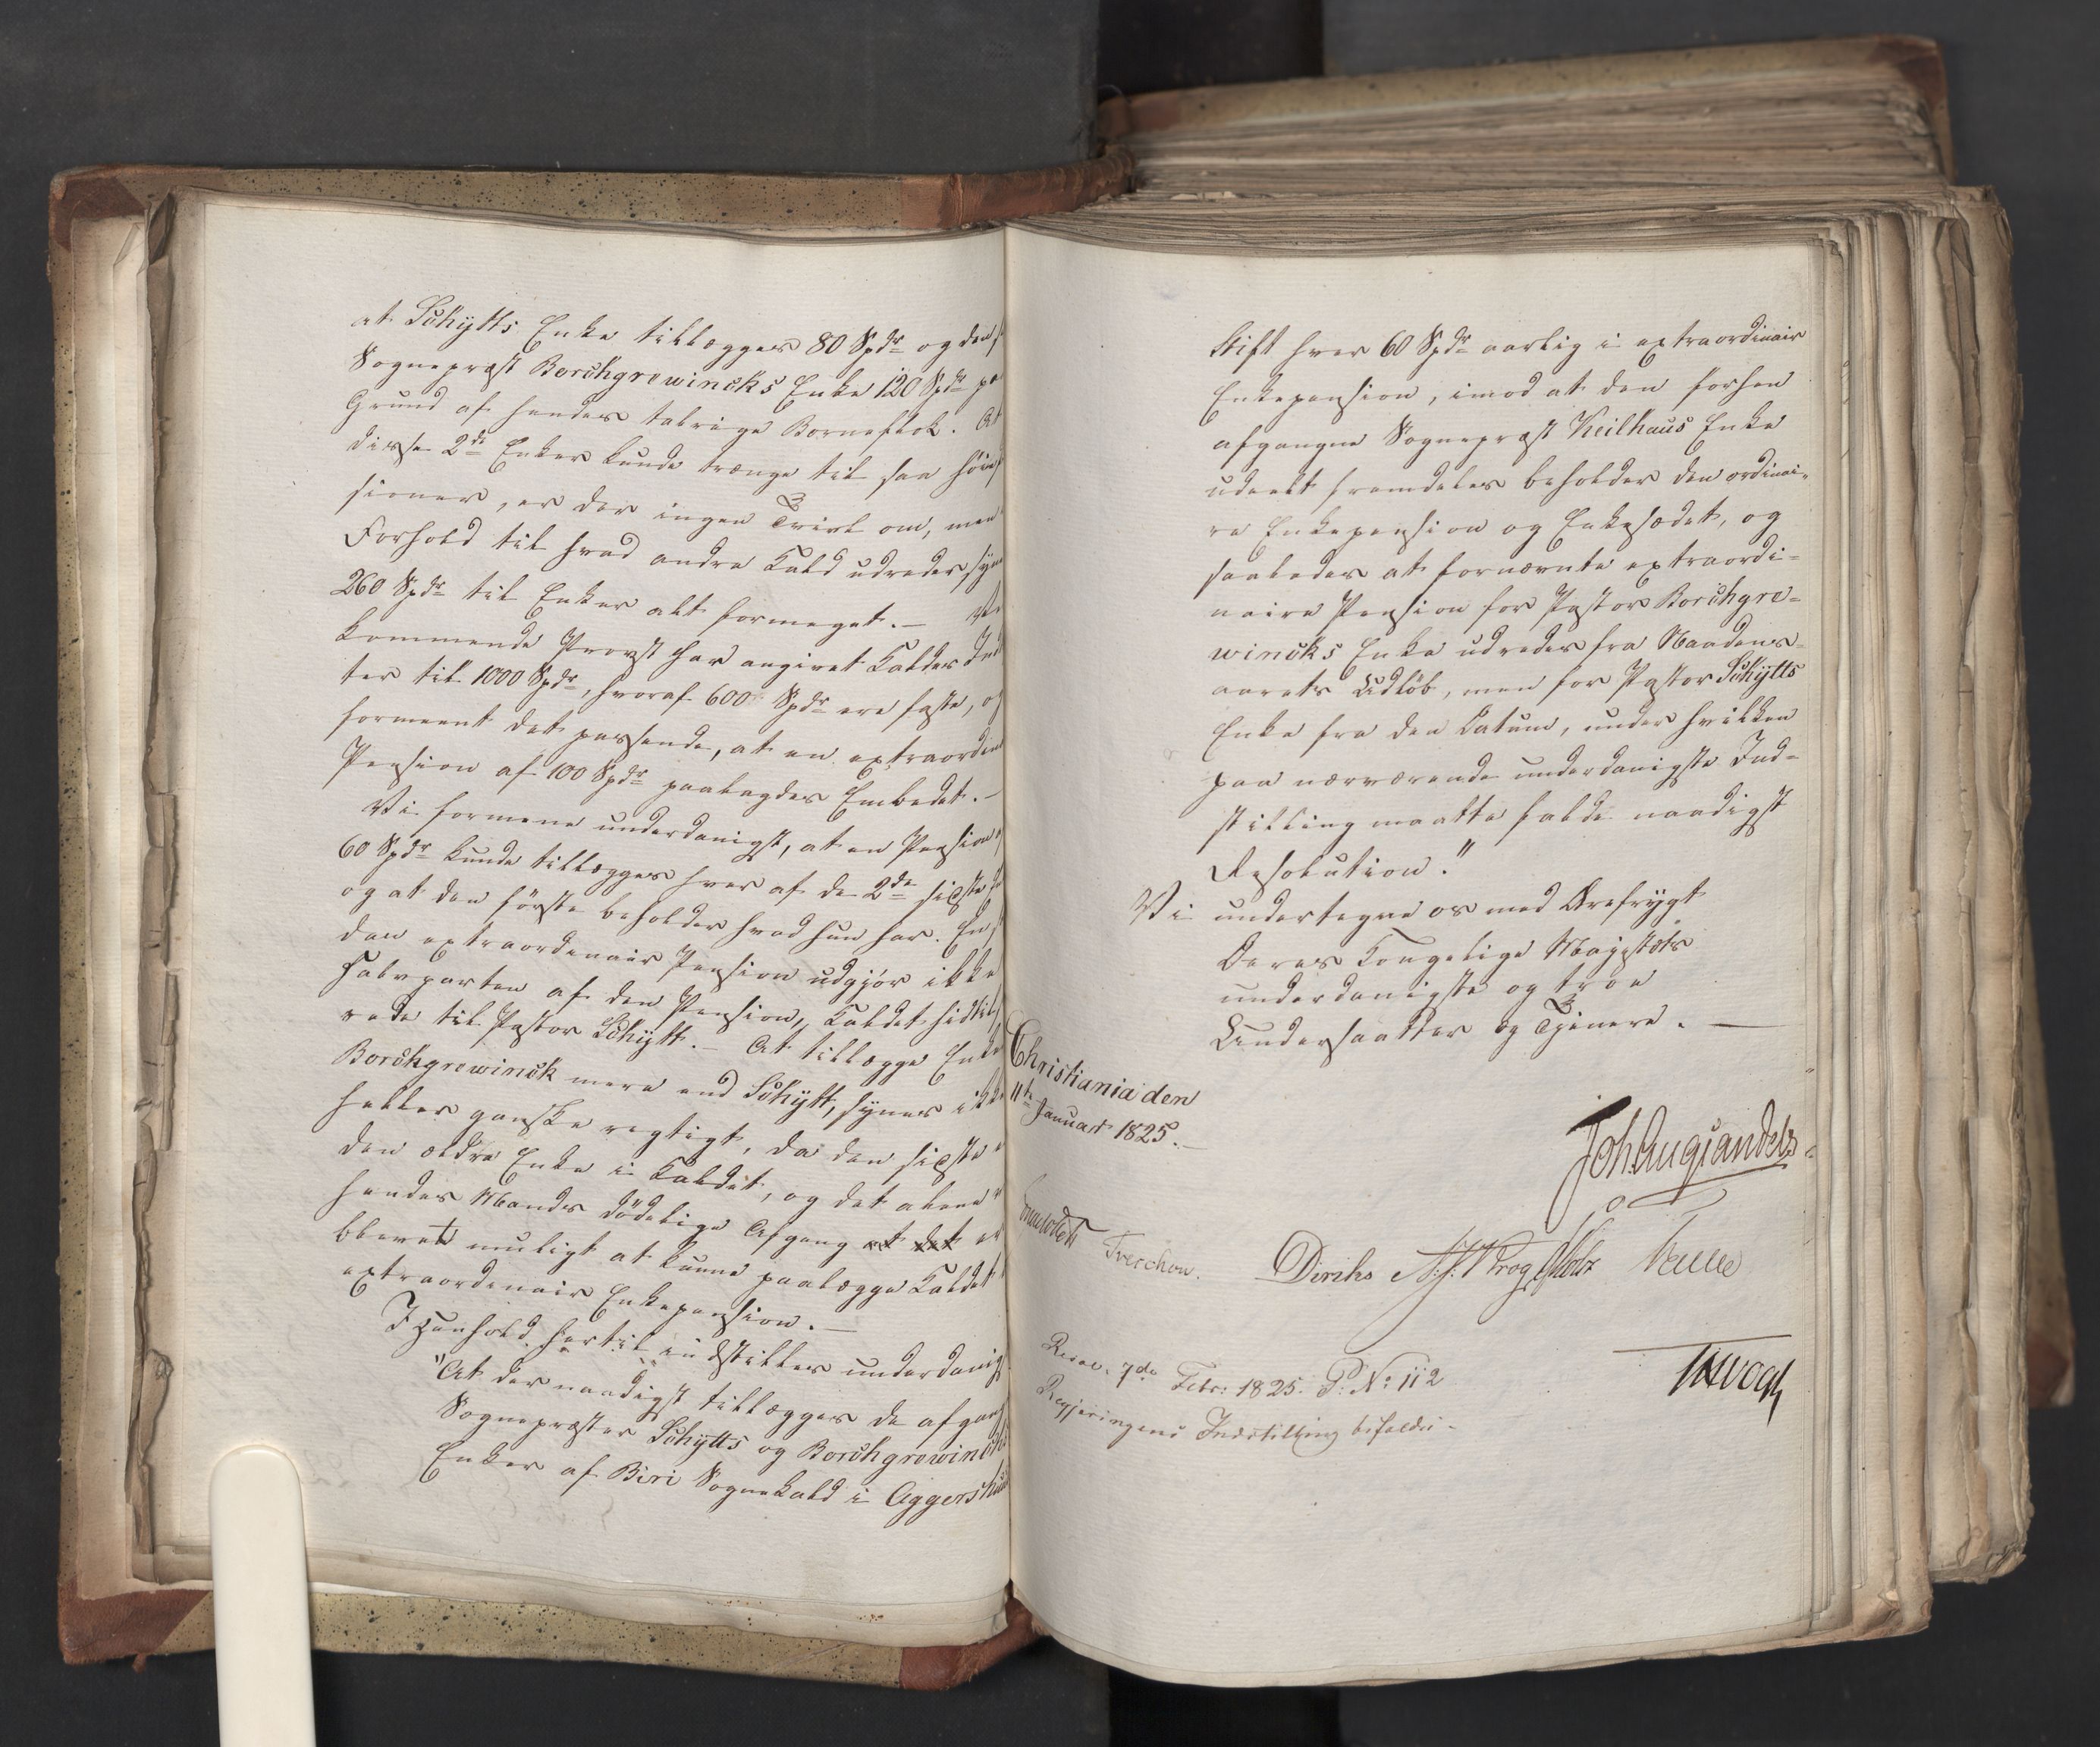 at Schÿtts Enke tillægges 80 Spdr og den
Sognepræst Borchgrewincks Enke 120 Spdr pa
Grund af hendes talrige Børneflok. At
disse 2de Enker kunde trænge til saa høie
sioner, er der ingen Tvivl om, men
Forhold til hvad andre Kald udreder, syn
260 Spdr til Enker alt formeget. — Ve
kommende Provst har angivet Kaldes Ind
ter til 1000 Spdr, hvoraf 600 Spdr ere faste, og
formeent det passende, at en extraorden
Pension af 100 Spdr paalagdes Embedet. —
Vi formene underdanigst, at en Pension
60 Spdr kunde tillægges hver af de 2de sidste
og at den første beholder hvad hun har. En
dan extraordenair Pension udgjør ikke
Halvparten af den Pension, Kaldet hidtil
rede til Pastor Schÿtt. — At tillægge Enke
Borchgrewinck mere end Schÿtt, synes ikke
heller ganske rigtigt, da den sidste e
den ældre Enke i Kaldet, og det alene v
hendes Mands dödelige Afgang at det er
blevet muligt at kunne paalægge Kaldet
extraordenair Enkepension. —
I Henhold hertil indstilles underdanig
"At der naadigst tillægges de afgang
Sognepræster Schÿtts og Borchgrewincks
Enker af Biri Sognekald i Aggershuus
Stift hver 60 Spdr aarlig i extraordinair
Enkepension, imod at den forhen
afgangne Sognepræst Keilhaus Enke
udeelt fremdeles beholder den ordinai-
re Enkepension og Enkesædet, og
saaledes at fornævnte extraordi-
naire Pension for Pastor Borchgre-
wincks Enke udredes fra Naadens-
aarets Udløb, men for Pastor Schÿtts
Enke fra den Datum, under hvilken
paa nærværende underdanigste Ind-
stilling maatte falde naadigst
Resolution."
Vi undertegne os med Ærefrygt
Deres Kongelige Majestæts
underdanigste og troe
Undersaatter og Tjenere. —
Christiania den
11te Januar 1825. —
Joh. Aug Sandels
Collett
Treschow.
Diriks N.J. Krog Holst
Resol. 7de Febr: 1825. P: No: 112
Regjeringens Indstilling bifaldes.
JHVogt